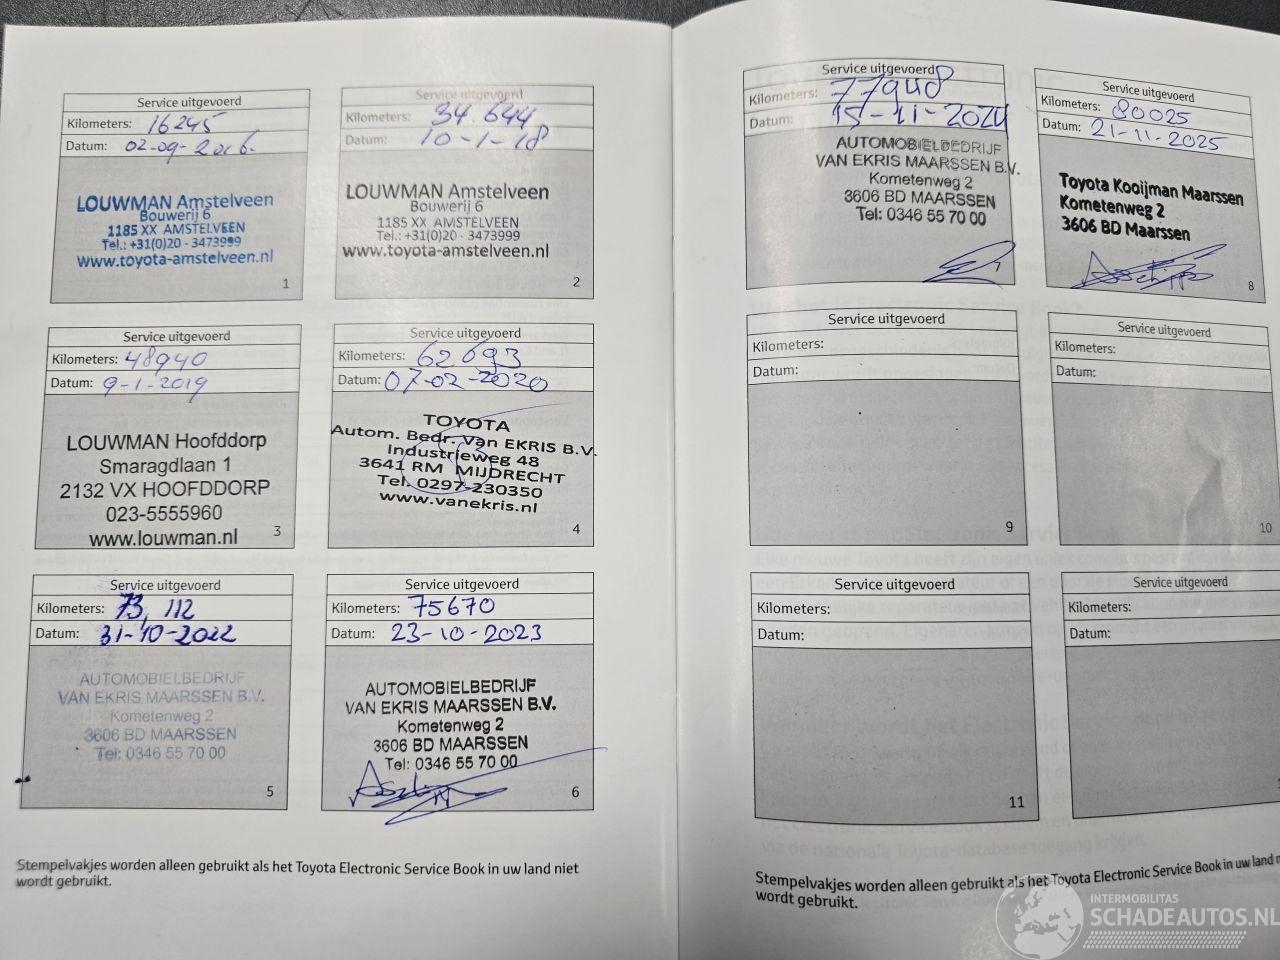 Service uitgevoerd
Kilometers: 16245
Datum: 02-09-2016.
LOUWMAN Amstelveen
Bouwerij 6
1185 XX AMSTELVEEN
Tel.: +31(0)20 - 3473999
www.toyota-amstelveen.nl
1
Service uitgevoerd
Kilometers: 34.644
Datum: 10-1-18
LOUWMAN Amstelveen
Bouwerij 6
1185 XX AMSTELVEEN
Tel.: +31(0)20 - 3473999
www.toyota-amstelveen.nl
2
Service uitgevoerd
Kilometers: 48940
Datum: 9-1-2019
LOUWMAN Hoofddorp
Smaragdlaan 1
2132 VX HOOFDDORP
023-5555960
www.louwman.nl
3
Service uitgevoerd
Kilometers: 62693
Datum: 07-02-2020
TOYOTA
Autom. Bedr. Van EKRIS B.V.
Industrieweg 48
3641 RM MIJDRECHT
Tel. 0297-230350
www.vanekris.nl
4
Service uitgevoerd
Kilometers: 73,112
Datum: 31-10-2022
AUTOMOBIELBEDRIJF
VAN EKRIS MAARSSEN B.V.
Kometenweg 2
3606 BD MAARSSEN
Tel: 0346 55 70 00
5
Service uitgevoerd
Kilometers: 75670
Datum: 23-10-2023
AUTOMOBIELBEDRIJF
VAN EKRIS MAARSSEN B.V.
Kometenweg 2
3606 BD MAARSSEN
Tel: 0346 55 70 00
6
Stempelvakjes worden alleen gebruikt als het Toyota Electronic Service Book in uw land niet
wordt gebruikt.
Service uitgevoerd
Kilometers: 77948
Datum: 15-11-2024
AUTOMOBIELBEDRIJF
VAN EKRIS MAARSSEN B.V.
Kometenweg 2
3606 BD MAARSSEN
Tel: 0346 55 70 00
7
Service uitgevoerd
Kilometers: 80025
Datum: 21-11-2025
Toyota Kooijman Maarssen
Kometenweg 2
3606 BD Maarssen
8
Service uitgevoerd
Kilometers:
Datum:
9
Service uitgevoerd
Kilometers:
Datum:
10
Service uitgevoerd
Kilometers:
Datum:
11
Service uitgevoerd
Kilometers:
Datum:
Stempelvakjes worden alleen gebruikt als het Toyota Electronic Service Book in uw land
wordt gebruikt.
INTERMOBILITAS
SCHADEAUTOS.NL